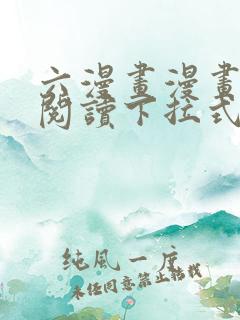 六漫畫漫畫
閱讀下拉式
純風一度
未经同意禁止转载